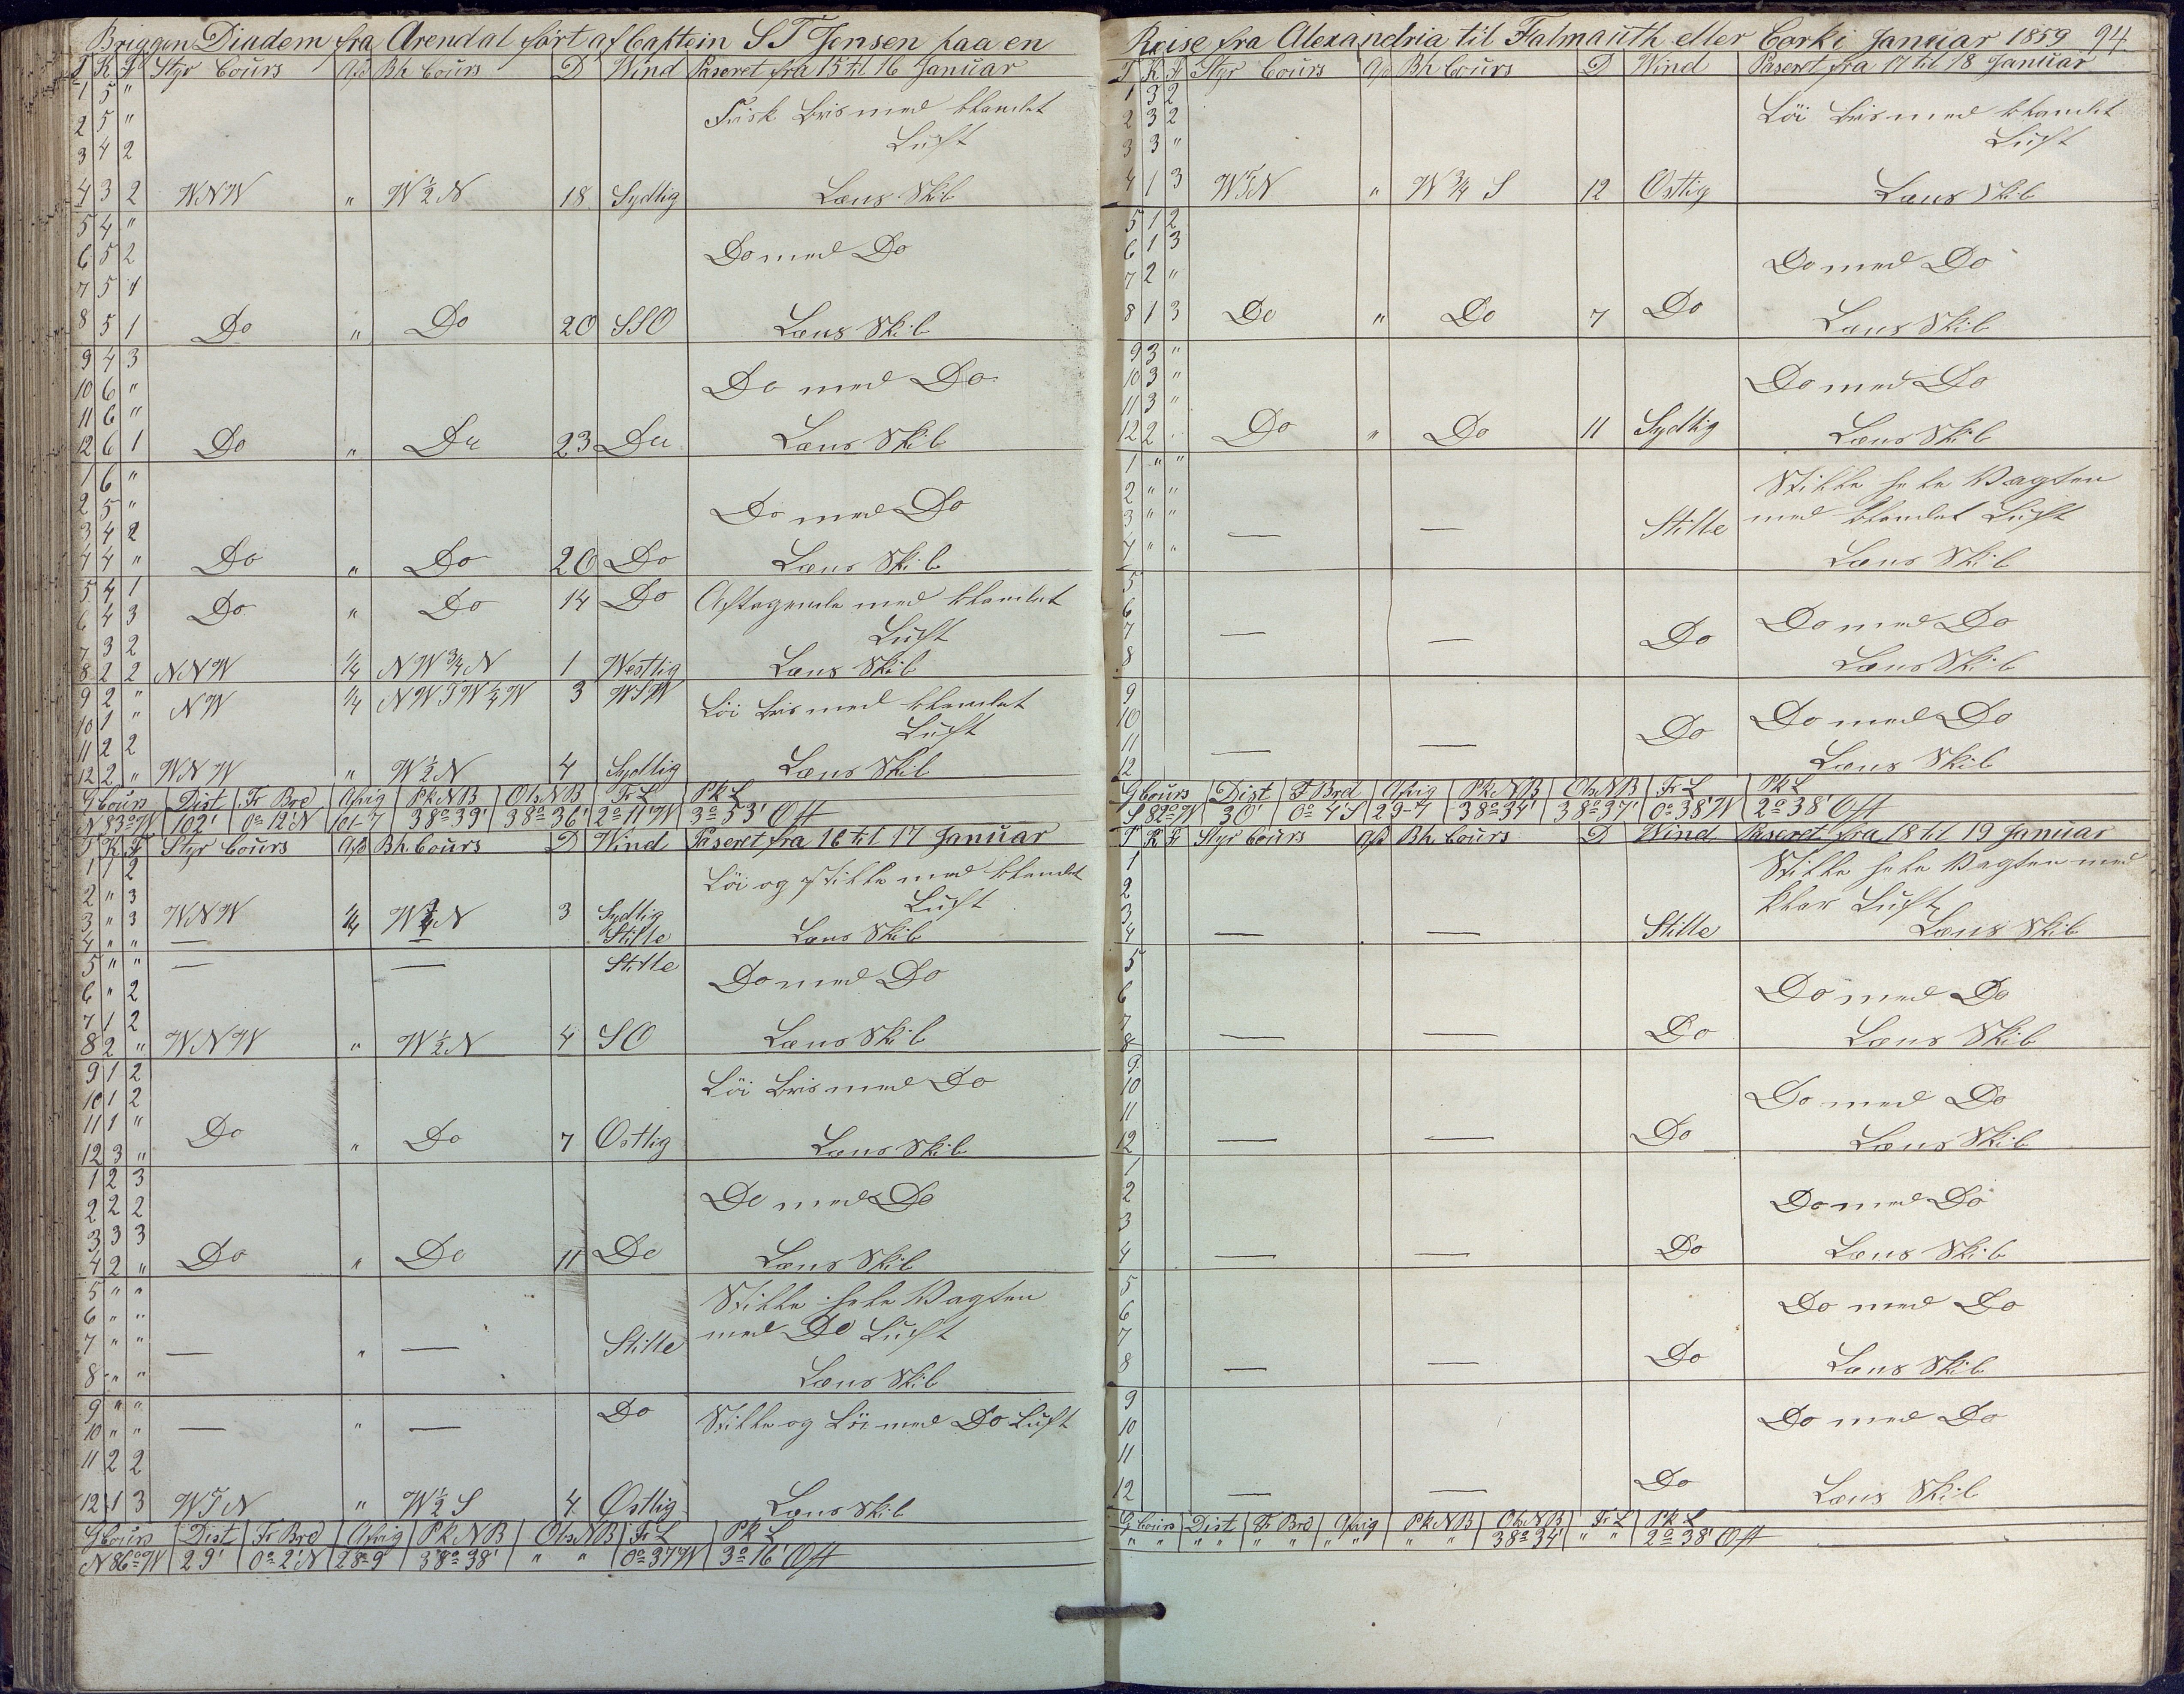 Briggen Diadem fra Arendal ført af Captein S T Jensen paa en
T K F Styr Cours Afd Bh Cours D Wind Paseret fra 15 til 16 Januar
1 5 "
2 5 " Frisk Bris med blandet
3 4 2 Luft
4 3 2 WNW " W½N 18 Sydlig Læns Skib
5 4 "
6 5 2 Do med Do
7 5 1
8 5 1 Do " Do 20 SSO Læns Skib
9 4 3
10 6 " Do med Do
11 6 "
12 6 1 Do " Do 23 Do Læns Skib
1 6 "
2 5 " Do med Do
3 4 2
4 4 " Do " Do 20 Do Læns Skib
5 4 1
6 4 3 Do " Do 14 Do Aftagende med blandet
7 3 2 Luft
8 2 2 NNW ¼ NW¾N 1 Westlig Læns Skib
9 2 " NW ¼ NWTW¼W 3 WSW Löi Bris med blandet
10 1 " Luft
11 2 2
12 2 " WNW " W½N 4 Sydlig Læns Skib
G Cours Dist Fr Brd Afvig Pk NB Obs NB Fr L Pk L
N 83° W 102' 0° 12' N 101-7 38° 39' 38° 36' 2° 11' W 3° 53' Ost
T K F Styr Cours Afd Bh Cours D Wind Paseret fra 16 til 17 Januar
1 1 2 Löi og Stille med blandet
2 " 3 Luft
3 " 3 WNW ¼ W¾N 3 Sydlig
4 " " — — Stille Læns Skib
5 " " — — Stille
6 " 2 Do med Do
7 1 2
8 2 " WNW " W½N 4 SO Læns Skib
9 1 2 Löi Bris med Do
10 1 2
11 1 " Do " Do 7 Ostlig
12 3 " Læns Skib
1 2 3
2 2 2 Do med Do
3 3 3
4 2 " Do " Do 11 Do Læns Skib
5 " " Stille hele Vagten
6 " " med Do Luft
7 " " — " — Stille
8 " " Læns Skib
9 " " Do Stille og Löi med Do Luft
10 " " — " —
11 2 2
12 1 3 WTN " W½S 4 Ostlig Læns Skib
G Cours Dist Fr Brd Afvig Pk NB Obs NB Fr L Pk L
N 86° W 29' 0° 2' N 28-9 38° 38' " " 0° 37' W 3° 16' Ost
Reise fra Alexandria til Falmauth eller Cork i Januar 1859 94
T K F Styr Cours Afd Bh Cours D Wind Paseret fra 17 til 18 Januar
1 3 2
2 3 2 Löi Bris med blandet
3 3 " Luft
4 1 3 WTN " W¾S 12 Ostlig Læns Skib
5 1 2
6 1 3 Do med Do
7 2 "
8 1 3 Do " Do 7 Do Læns Skib
9 3 "
10 3 " Do med Do
11 3 "
12 2 " Do " Do 11 Sydlig Læns Skib
1 " "
2 " " Stille hele Vagten
3 " " — — Stille med blandet Luft
4 " " Læns Skib
5
6 Do med Do
7 — — Do
8 Læns Skib
9
10 Do Do med Do
11 — —
12 Læns Skib
G Cours Dist F Brd Afvig Pk NB Obs NB Fr L Pk L
S 82° W 30' 0° 4' S 29-7 38° 34' 38° 37' 0° 38' W 2° 38' Ost
T K F Styr Cours Afd Bh Cours D Wind Paseret fra 18 til 19 Januar
1 Stille hele Vagten med
2 klar Luft
3
4 — — Stille Læns Skib
5
6 Do med Do
7
8 — — Do Læns Skib
9
10 Do med Do
11
12 — — Do Læns Skib
1
2 Do med Do
3
4 — — Do Læns Skib
5
6 Do med Do
7
8 — — Do Læns Skib
9
10 Do med Do
11
12 — — Do Læns Skib
G Cours Dist Fr Brd Afvig Pk NB Obs NB Fr L Pk L
" " " " " " " " " " 38° 34' " " 2° 38' Ost